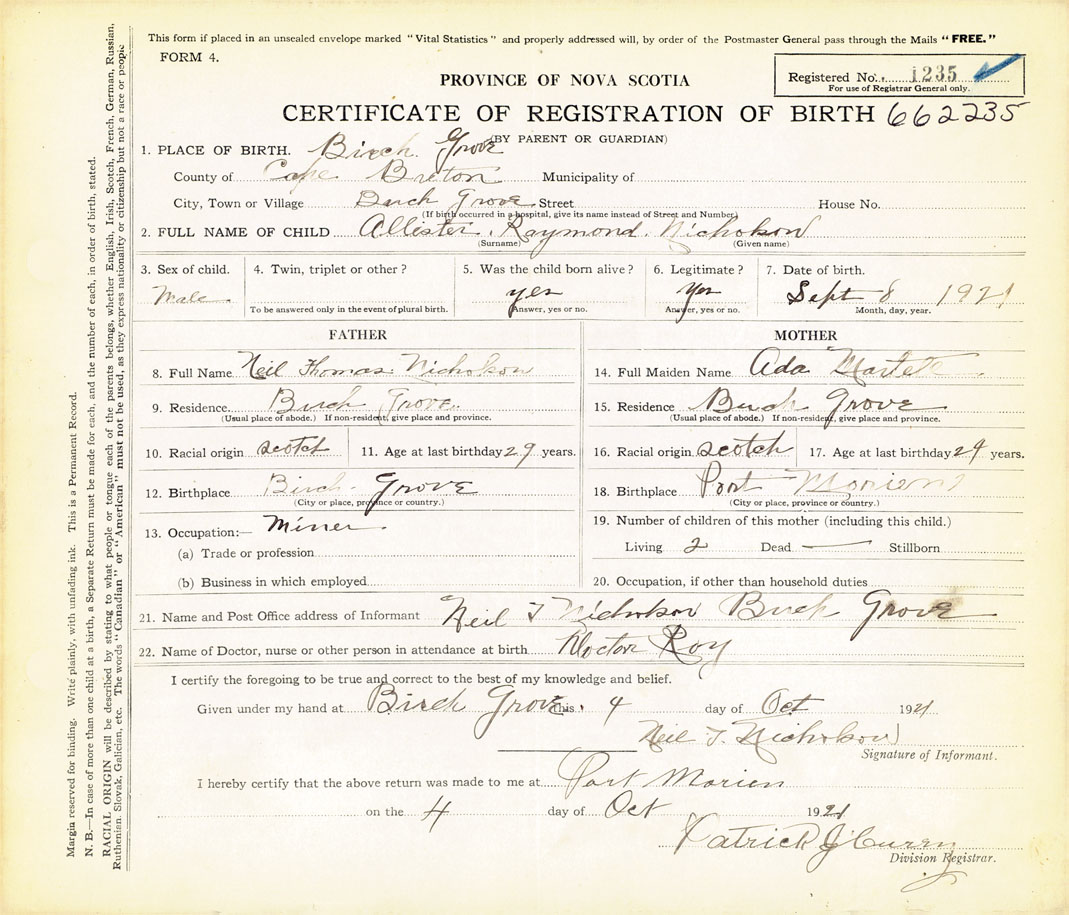 This form if placed in an unsealed envelope marked "Vital Statistics" and properly addressed will, by order of the Postmaster General pass through the Mails "FREE."
FORM 4.
PROVINCE OF NOVA SCOTIA
Registered No. 1235
For use of Registrar General only.
CERTIFICATE OF REGISTRATION OF BIRTH 662235
(BY PARENT OR GUARDIAN)
1. PLACE OF BIRTH. Birch Grove
County of Cape Breton Municipality of
City, Town or Village Birch Grove Street House No.
(If birth occurred in a hospital, give its name instead of Street and Number)
2. FULL NAME OF CHILD Allister Raymond Nicholson
(Surname) (Given name)
3. Sex of child. 4. Twin, triplet or other? 5. Was the child born alive? 6. Legitimate? 7. Date of birth.
Male yes Yes Sept 8 1921
To be answered only in the event of plural birth. Answer, yes or no. Answer, yes or no. Month, day, year.
FATHER MOTHER
8. Full Name Neil Thomas Nicholson 14. Full Maiden Name Ada
9. Residence. Birch Grove 15. Residence Birch Grove
(Usual place of abode.) If non-resident, give place and province. (Usual place of abode.) If non-resident, give place and province.
10. Racial origin scotch 11. Age at last birthday 29 years. 16. Racial origin scotch 17. Age at last birthday 29 years.
12. Birthplace Birch Grove 18. Birthplace Port Morien
(City or place, province or country.) (City or place, province or country.)
13. Occupation:— Miner 19. Number of children of this mother (including this child.)
(a) Trade or profession Living 2 Dead — Stillborn
(b) Business in which employed 20. Occupation, if other than household duties
21. Name and Post Office address of Informant Neil T Nicholson Birch Grove
22. Name of Doctor, nurse or other person in attendance at birth Doctor Roy
I certify the foregoing to be true and correct to the best of my knowledge and belief.
Given under my hand at Birch Grove this 4 day of Oct 1921
Neil T. Nicholson
Signature of Informant.
I hereby certify that the above return was made to me at Port Morien
on the 4 day of Oct 1921
Patrick J Curry
Division Registrar.
Margin reserved for binding. Write plainly, with unfading ink. This is a Permanent Record.
N. B.—In case of more than one child at a birth, a Separate Return must be made for each, and the number of each, in order of birth, stated.
RACIAL ORIGIN will be described by stating to what people or tongue each of the parents belongs, whether English, Irish, Scotch, French, German, Russian,
Ruthenian, Slovak, Galician, etc. The words "Canadian" or "American" must not be used, as they express nationality or citizenship but not a race or people